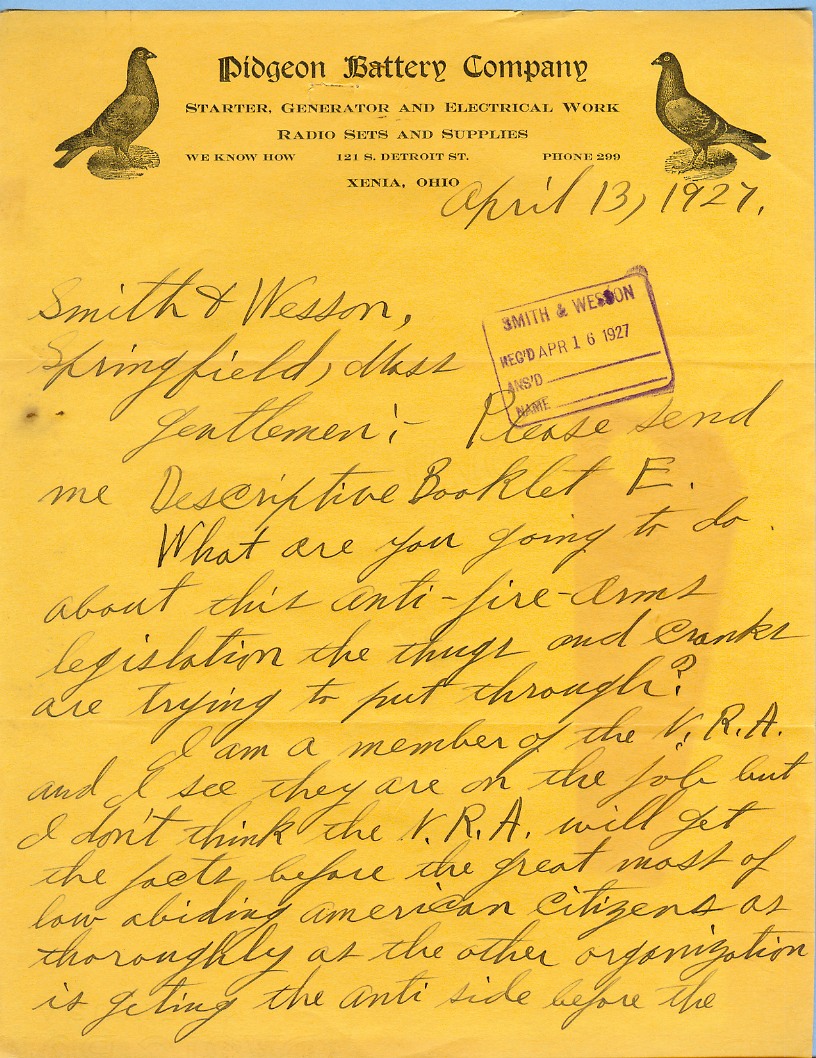 Pidgeon Battery Company
STARTER, GENERATOR AND ELECTRICAL WORK
RADIO SETS AND SUPPLIES
WE KNOW HOW 121 S. DETROIT ST. PHONE 299
XENIA, OHIO
April 13, 1927.
Smith & Wesson,
Springfield, Mass
SMITH & WESSON
REC'D APR 16 1927
ANS'D
NAME
Gentlemen:- Please send
me Descriptive Booklet E.
What are you going to do
about this anti-fire-arms
legislation the thugs and cranks
are trying to put through?
I am a member of the N.R.A.
and I see they are on the job but
I don't think the N.R.A. will get
the facts before the great most of
law abiding american citizens as
thoroughly as the other organization
is geting the anti side before the